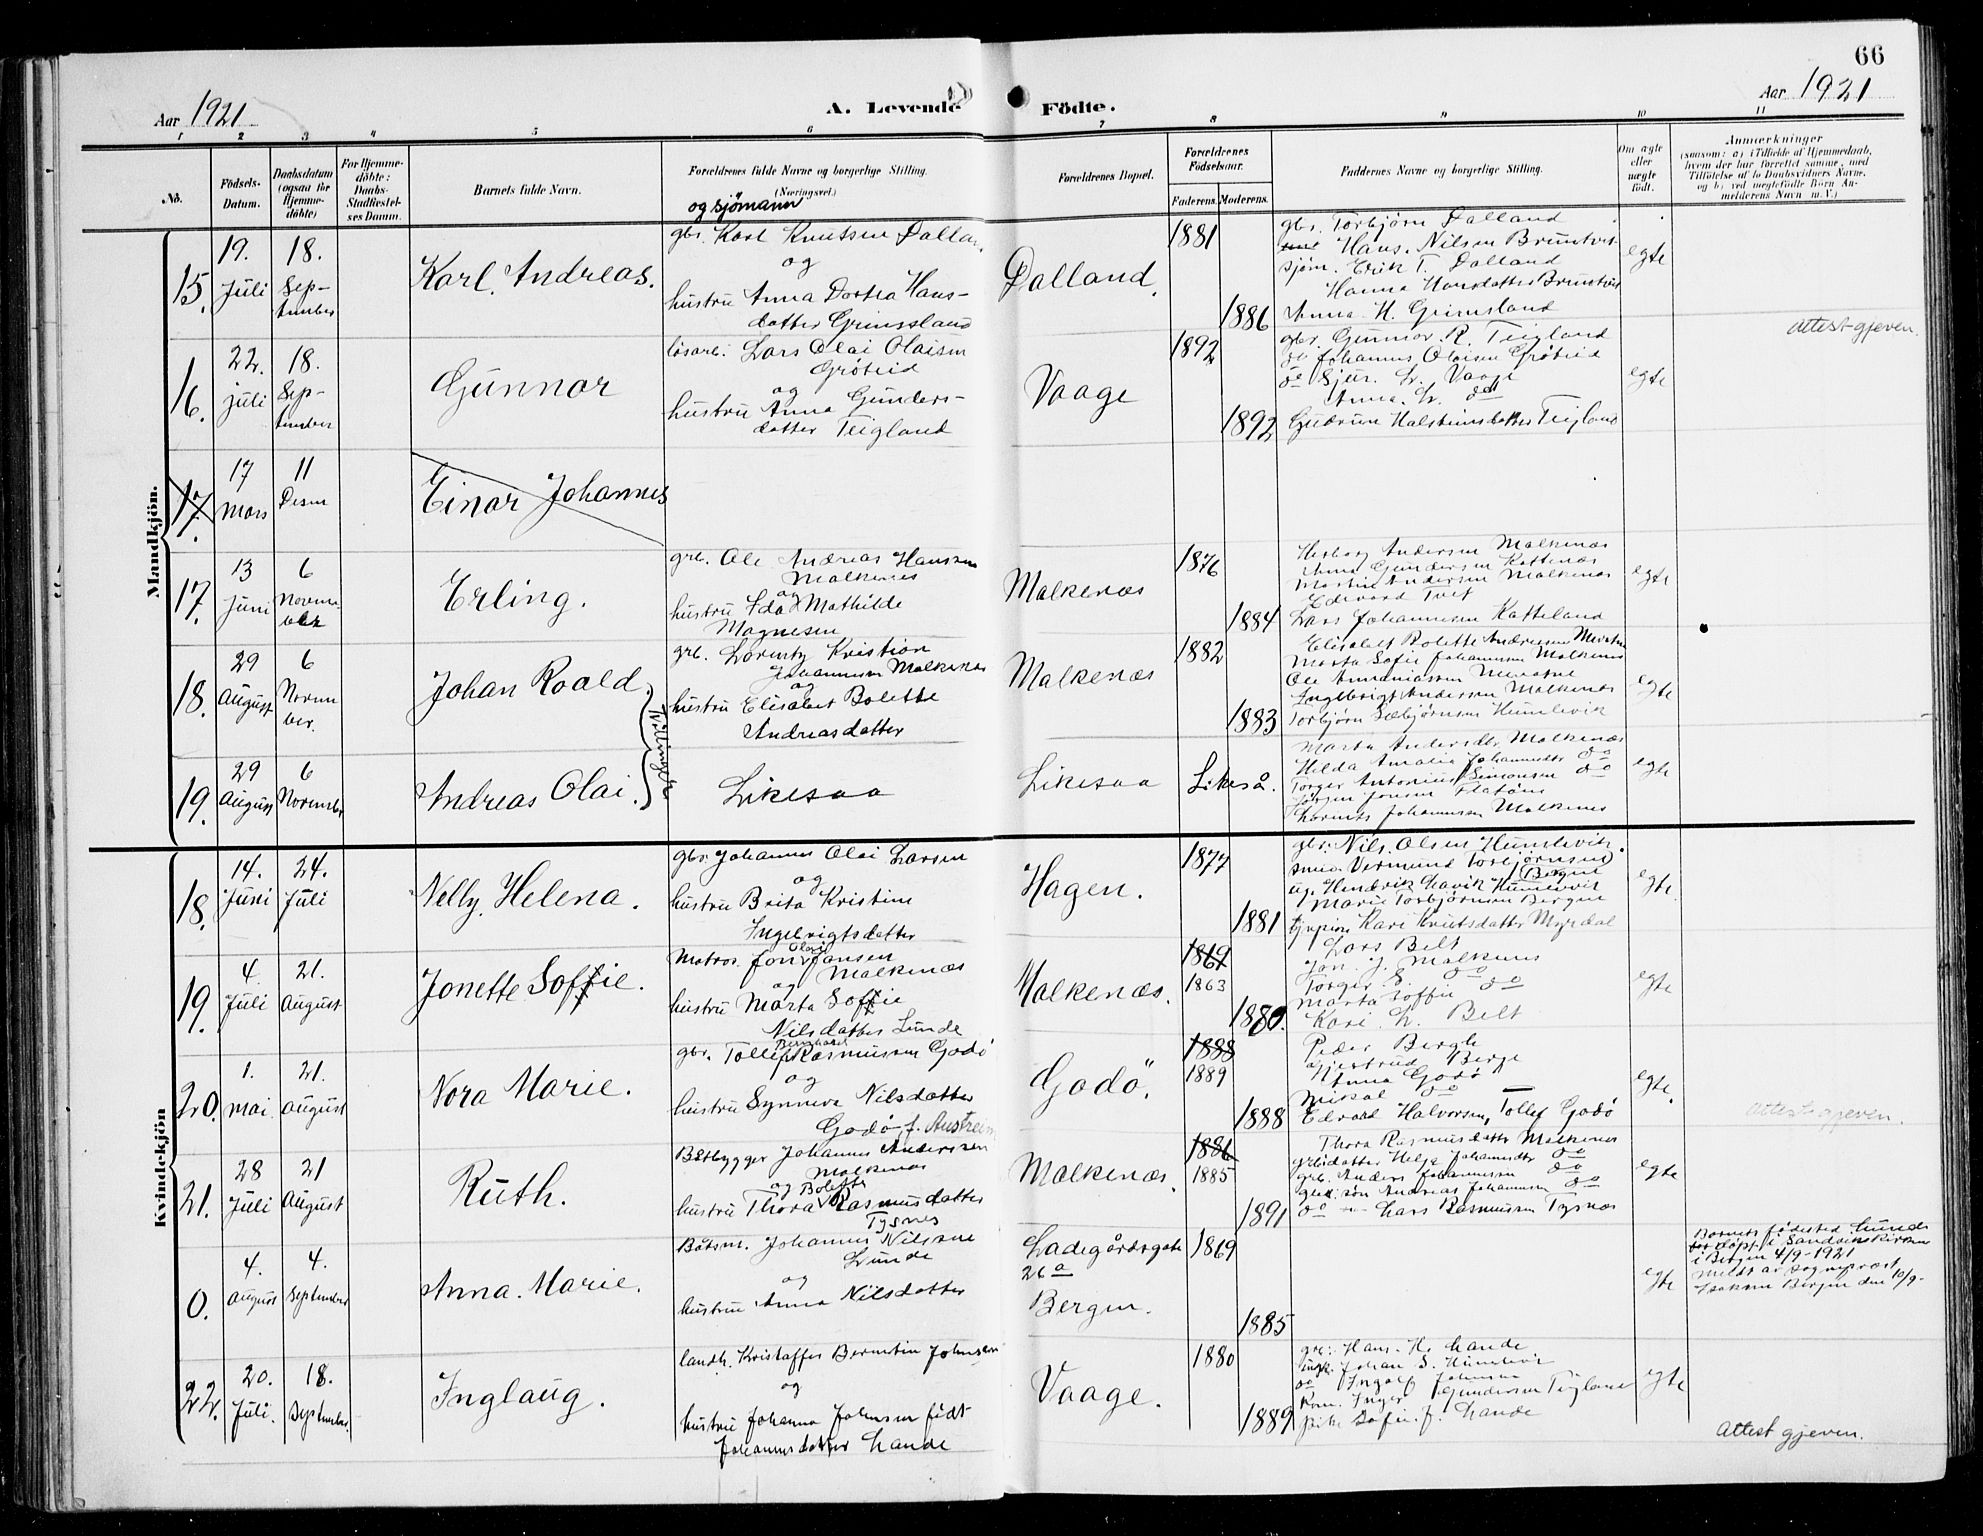 66
Aar 1921
A. Levende Födte.
Aar 1921
1 2 3 4 5 6 7 8 9 10 11
No.
Födsels-Datum.
Daabsdatum (ogsaa for Hjemme-döbte)
For Hjemme-döbte: Daabs-Stadfæstel-ses Datum.
Barnets fulde Navn.
Forældrenes fulde Navne og borgerlige Stilling. (Næringsvei.)
Forældrenes Bopæl.
Forældrenes Födselsaar.
Faderens. Moderens.
Faddernes Navne og borgerlige Stilling.
Om ægte eller uægte født.
Anmærkninger
(saasom: a) i Tilfælde af Hjemmedaab,
hvem der har forrettet samme, med
Tilföielse af to Daabsvidners Navne,
og b) ved uægtefødte Börn An-
melderens Navn m. V.)
Mandkjön.
15. 19. Juli 18. Sep-tember
Karl. Andreas.
og sjömann
gbr. Karl Knutsen Dalland
og
hustru Anna Dortea Hans-
datter Grimsland
Dalland.
1881
1886
gbr. Torbjørn Dalland
Hans. Nilsen
sjöm. Erik T. Dalland
Hanna Hansdatter
Anna H. Grimsland
egte
16. 22. juli 18. Sep-tember
Gunnar
lösarb. Lars Olai Olaisen
Gröteid
og
hustru Anna Gunders-
datter Teigland
Vaage
1892
1892
gbr. Gunnar R. Teigland
do Johannes Olaisen Gröteid
do Sjur. L. Vaage
Anna. L. do
Gudrun Halsteinsdatter Teigland
egte
Attest gjeven.
17. 17 Mars 11 Desm
Einar Johannes
17. 13 Juni 6 November
Erling.
grb. Ole Andreas Hanssen
Malkenes
og
hustru Ida Mathilde
Magnesen
Malkenæs
1876
1884
Herborg Andersen Malkenæs
Anna Gundersen Kattenæs
Martin Andersen Malkenæs
Edvard Tvet
Lars Johannesen Katteland
egte
18. 29 August 6 Novem ber.
Johan Roald.
Tvillinger
grb. Lorentz Kristian
Johannessen Malkenes
og
hustru Elisabet Bolette
Andreasdatter
Malkenæs
1882
1883
Elisabet Bolette Andreasen
Marta Sofie Johannesen Malkenes
Ole Annaniassen
Ingebrigt Andersen Malkenæs
Torbjörn Sæbjörnsen Humlevik
egte
19. 29 August 6 November
Andreas Olai.
Likesaa
Likesaa
Likeså.
Marta Andersdtr Malkenæs
Hilda Amalia Johannesdtr do
Torger Antonius Simonsen do
Jörgen Jonsen Flatöns
Johannessen Malkenes
egte
Kvindekjön
18. 14. Juni 24. Juli
Nelly. Helena.
gbr. Johannes Olai Larsen
og
hustru Brita Kristine
Ingebrigtsdatter
Hagen.
1877
1881
gbr. Nils. Olsen Humlevik.
smed Vermund Torbjørnsen
Bergne
ug. Hendrik Lavik Humlevik
Marie Torbjørnsen Bergne
Kari Knutsdatter Myrdal
egte
19. 4. Juli 21. August
Jonette Soffie.
Matros. Jon Olai Jansen
Malkenæs
og
hustru Marta Soffie
Nilsdatter Lunde
Malkenæs.
1869
1863
1880.
Lars Belt
Jon. J. Malkenes
Torger S. do
Marta Soffie do
Kari L. Belt
egte
20. 1. mai 21. august
Nora Marie.
gbr. Tollef Rasmussen Godö
og
hustru Synneva Nilsdatter
Godö f. Austreim
Godö.
1888
1889
1888
Peder Bergh
Gjertrud Berge
Anna Godö
Mikal do
Edvard Halvorsen, Tollef Godö
egte.
Attest gjeven.
21. 28 Juli 21 August
Ruth.
Båtbygger Johannes Anderssen
Malkenæs
og Bolette
hustru Thora Rasmusdatter
Tysnes
Malkenæs.
1886
1885
1891
Thora Rasmusdatter Malkenes
grbsdatter Helga Johannesdtr do
grb. Anders Johannessen do
söm Andreas Johannesen do
do Lars Rasmussen Tysnæs
egte
0. 4. august 4. September
Anna. Marie.
Båtsm. Johannes Nilssen
Lunde
og
hustru Anna Nilsdatter
Ladegårdsgate
26a
Bergen.
1869
1885
egte
Barnets födested Lunde
döpt i Sandvikskirken
i Bergen 4/9-1921
Meldt av sogneprest
Isaksen Bergen den 10/9-
22. 20. Juli. 18. September
Inglaug.
landh. Kristoffer Berntin Johnsen
og
hustru Johanna Johnsen födt
Johannesdatter Lande
Vaage.
1880
1889
gbr. Hans. H. Lande
ungk. Johan S. Humlevik
do Ingolf Johnsen
Kone. Inger Gundersen Teigland
pike Sofie. f. Lande
egte
Attest gjeven.